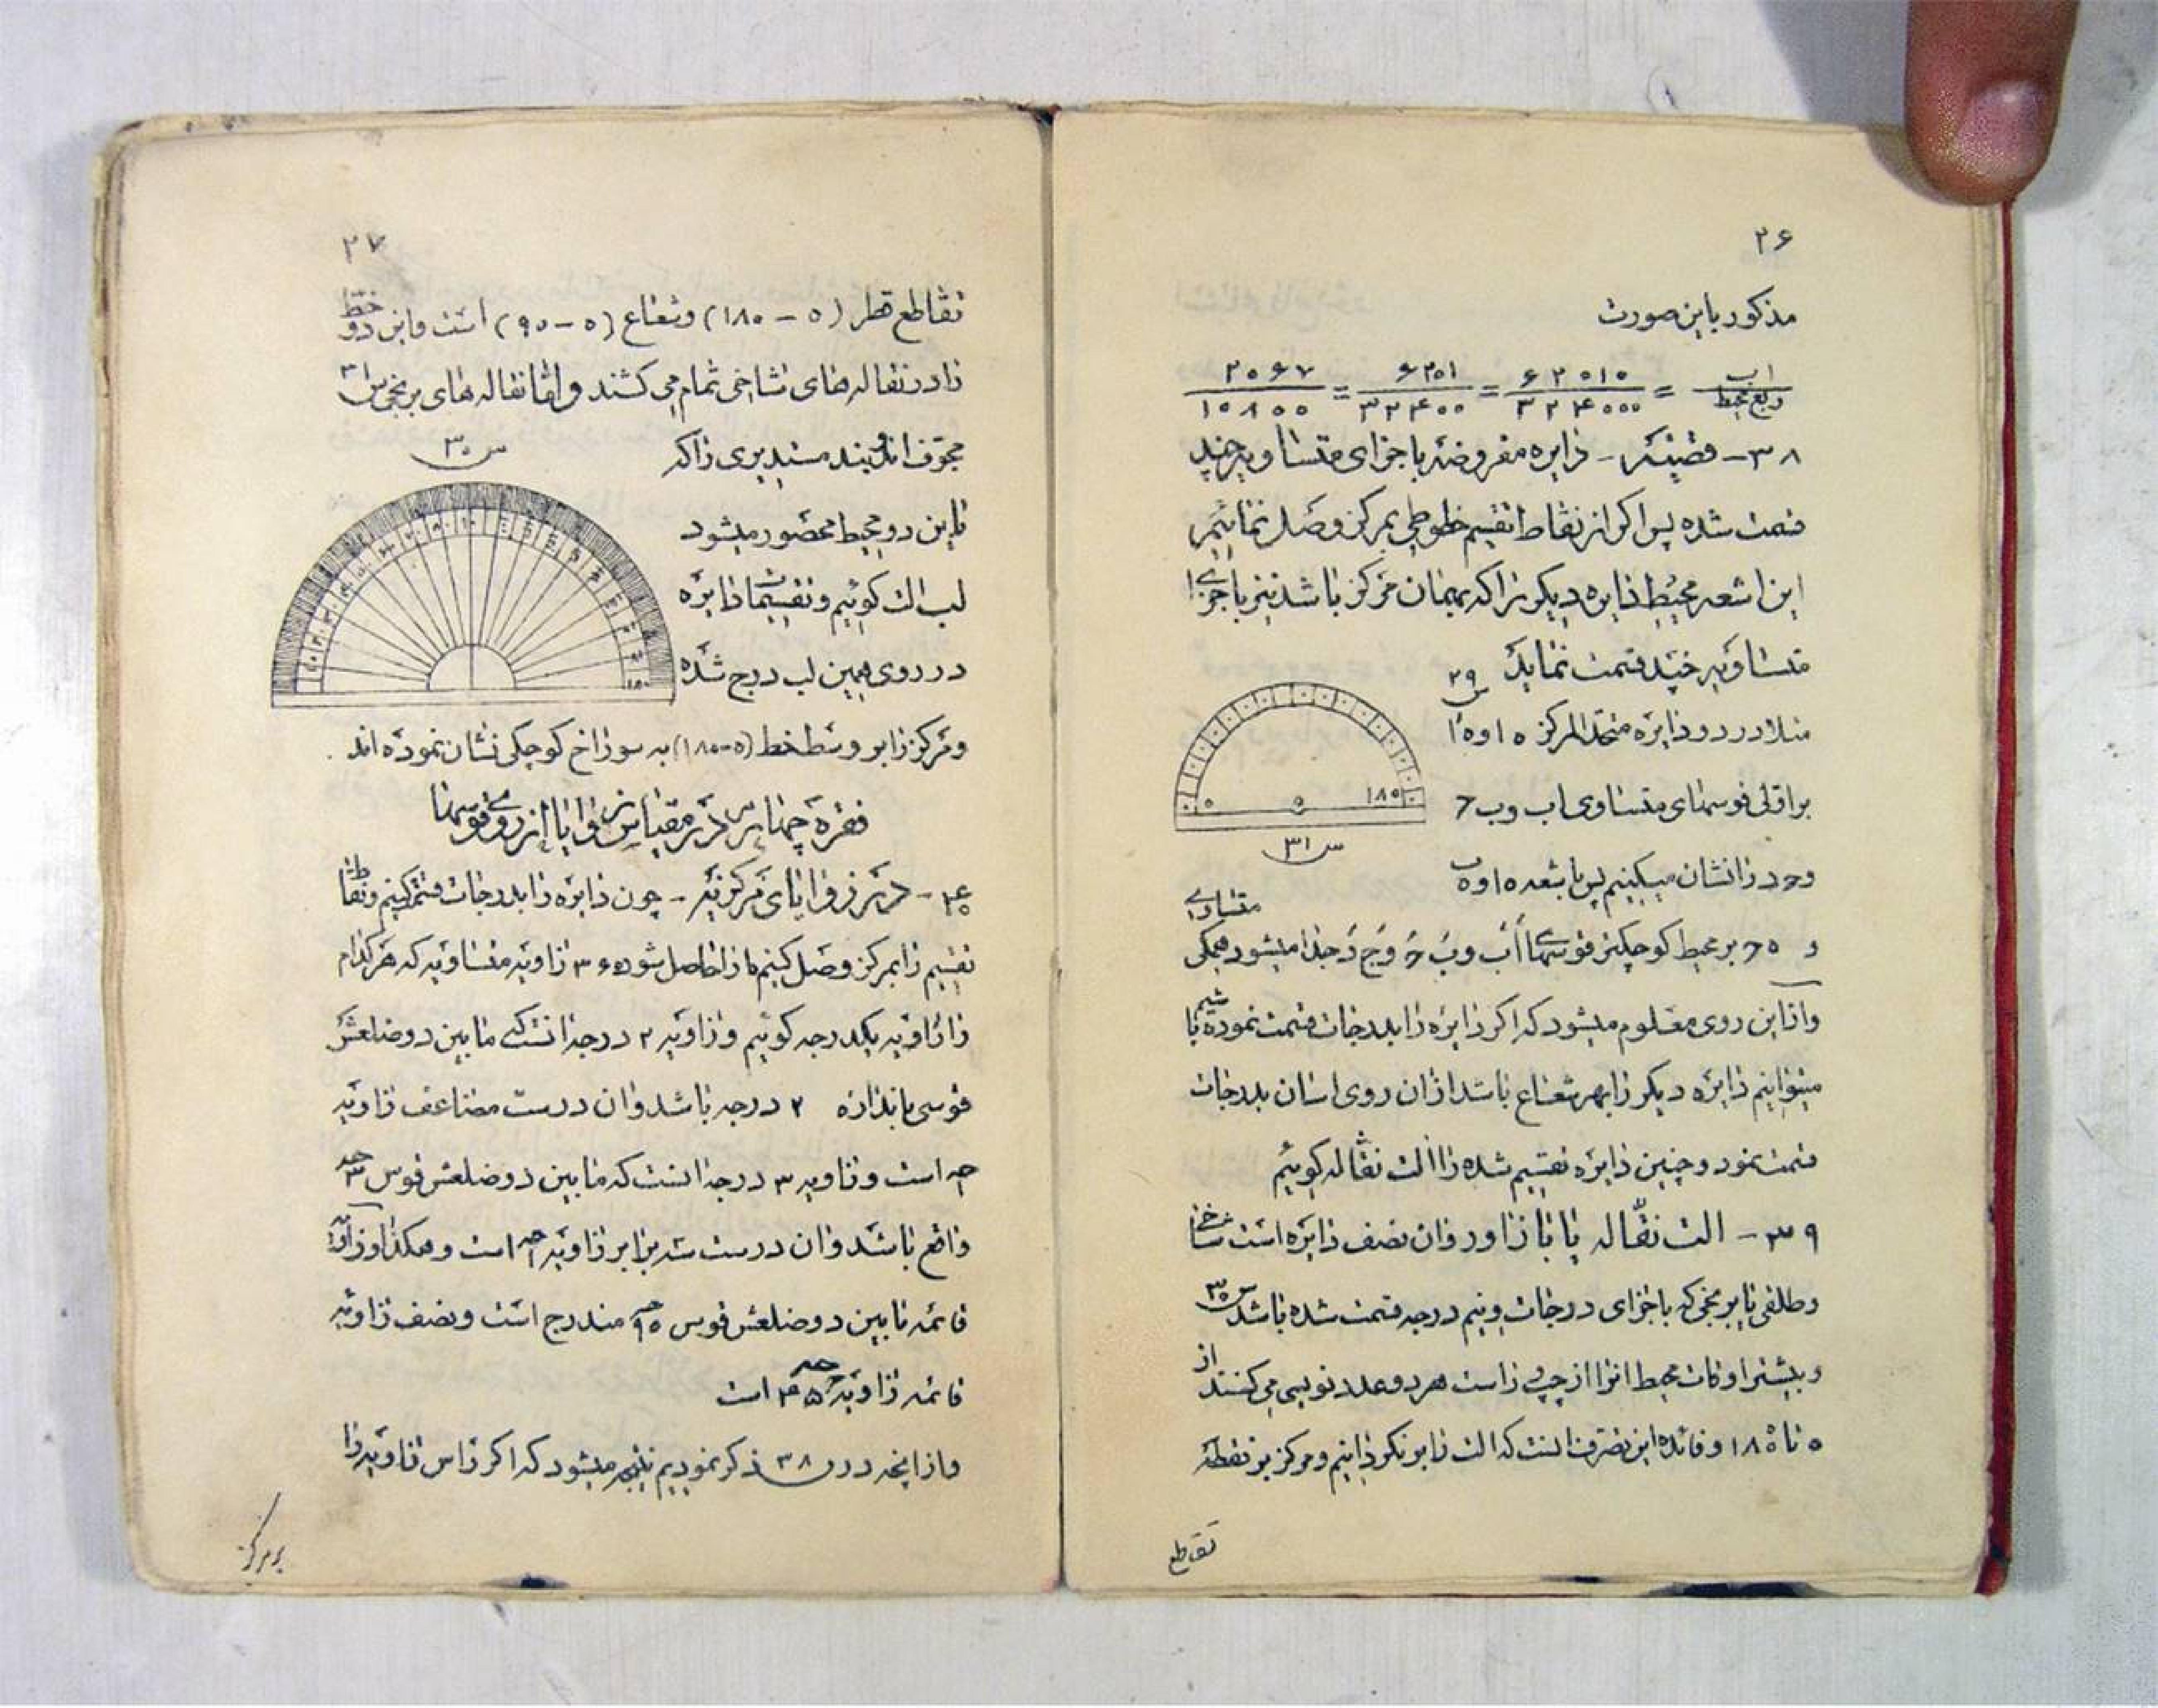 ۲۶
مذکور باین صورت
اب / ربع محیط = ۶۲۰۱۰ / ۳۲۴۰۰۰ = ۶۲۰۱ / ۳۲۴۰۰ = ۲۰۶۷ / ۱۰۸۰۰
۳۸ – قضیئه – دایره مفروضه باجزای متساویه چند
قسمت شده پس اکر از نقاط تقسیم خطوطی بمرکز وصل نمائیم
این اشعه محیط دایره دیکر را که بهمان مرکز باشد نیز باجزای
متساویه چند قسمت نماید س ۲۹
مثلا در دو دایره متحدالمرکز ه ا و ه اَ
بر اولی قوسهای متساوی اب و ب ح
و ح د را نشان میکنیم پس باشعه ه ا و ه ب
س ۳۱
۰ ۰ ۱۸۰
و ه ح بر محیط کوچکتر قوسهای اَ بَ و بَ حَ و حَ دَ جدا میشود همکی متساوی
و از این روی معلوم میشود که اکر دایره را بدرجات قسمت نموده باشیم
میتوانیم دایره دیکر را بهر شعاع باشد از آن روی اسان بدرجات
قسمت نمود و چنین دایره تقسیم شده را الت نقاله کوئیم
۳۹ – الت نقّاله یا نازاور وان نصف دایره است شاخی
وطلقی یا برنجی که باجزای درجات ونیم درجه قسمت شده باشد س ۳۰
و بیشتر اوقات محیط انرا از چپ و راست هر دو عدد نویسی می کنند از
۰ تا ۱۸۰ و فائده این تصرف انست که الت را بر نکردانیم و مرکز بر نقطه
تقاطع
۲۷
تقاطع قطر (۰ – ۱۸۰) و شعاع (۰ – ۹۰) است و این دو خط
را در نقاله های شاخی تمام می کشند و اما نقاله های برنجی س ۳۱
مجوف اند وبند مستدیری را که
س ۳۰
باین دو محیط محصور میشود
لب الت کوئیم و تقسیمات دایره
در روی همین لب درج شده
و مرکز را بر وسط خط (۰–۱۸۰) به سوراخ کوچکی نشان نموده اند .
فقره چهارم در مقیاس زوایا از روی قوسها
۴۰ – در زوایای مرکزیه – چون دایره را بدرجات قسمت کنیم و نقاط
تقسیم را بمرکز وصل کنیم ما را حاصل شود ۳۶۰ زاویه متساویه که هر کدام
را زاویه یکدرجه کوئیم و زاویه ۲ درجه انست که مابین دو ضلعش
قوسی باندازه ۲ درجه باشد وان درست مضاعف زاویه
۱ جه است و زاویه ۳ درجه انست که مابین دو ضلعش قوس ۳ جه
واقع باشد وان درست سه برابر زاویه ۱ جه است و هکذا و زاویه
قائمه مابین دو ضلعش قوس ۹۰ جه مندرج است و نصف زاویه
قائمه زاویه ۴۵ جه است
و از انچه در ۳۸ ذکر نمودیم نتیجه میشود که اکر راس زاویه را
بر مرکز